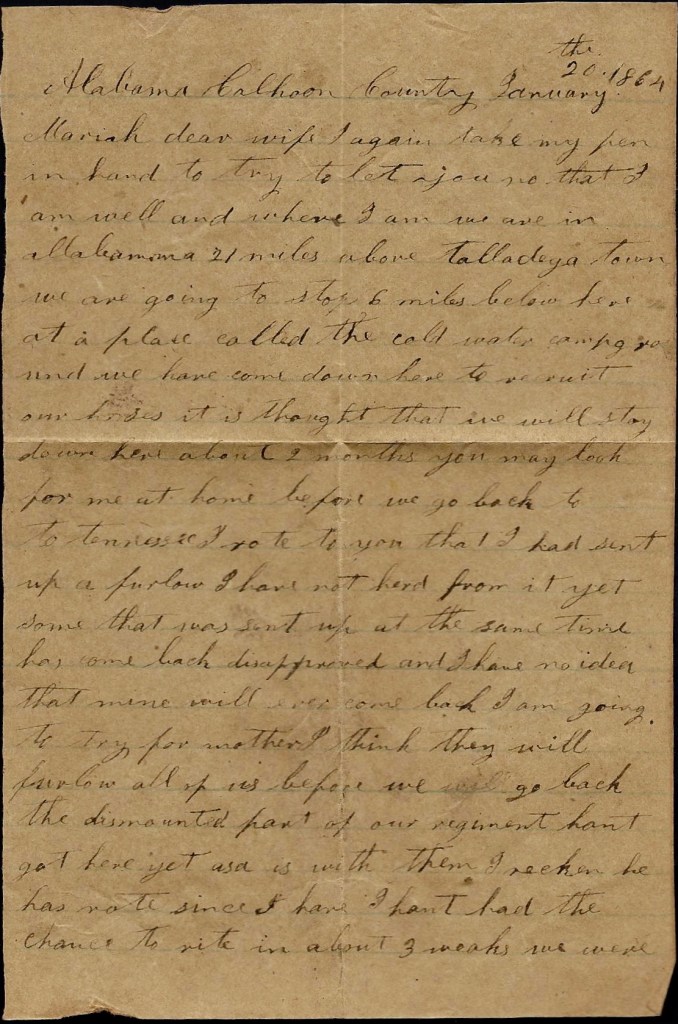 the
20. 1864
Alabama Calhoon County January
Mariah dear wife I again take my pen
in hand to try to let you no that I
am well and where I am we are in
allabamma 21 miles above talladega town
we are going to stop 6 miles below here
at a place called the cold water campgro
und we have come down here to recruit
our horses it is thought that we will stay
down here about 2 months you may look
for me at home before we go back to
to tennessee I rote to you that I had sent
up a furlow I have not herd from it yet
some that was sent up at the same time
has come back disapproved and I have no idea
that mine will ever come back I am going
to try for nother I think they will
furlow all of us before we will go back
the dismounted part of our regiment hant
got here yet asa is with them I recken he
has rote since I have I hant had the
chance to rite in about 3 weaks we were